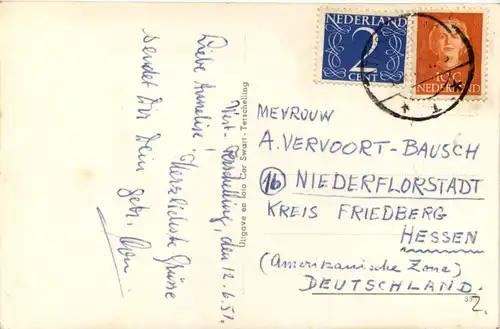 West-Terschelling, den 12.6.51.
Liebe Annelise! Herzlichste Grüsse
sendet Dir Dein getr.
Uitgave en foto Cor Swart - Terschelling
NEDERLAND
2
CENT
10 C
NEDERLAND
MEVROUW
A. VERVOORT-BAUSCH
16 NIEDERFLORSTADT
KREIS FRIEDBERG
HESSEN
(Amerikanische Zone)
DEUTSCHLAND.
2.